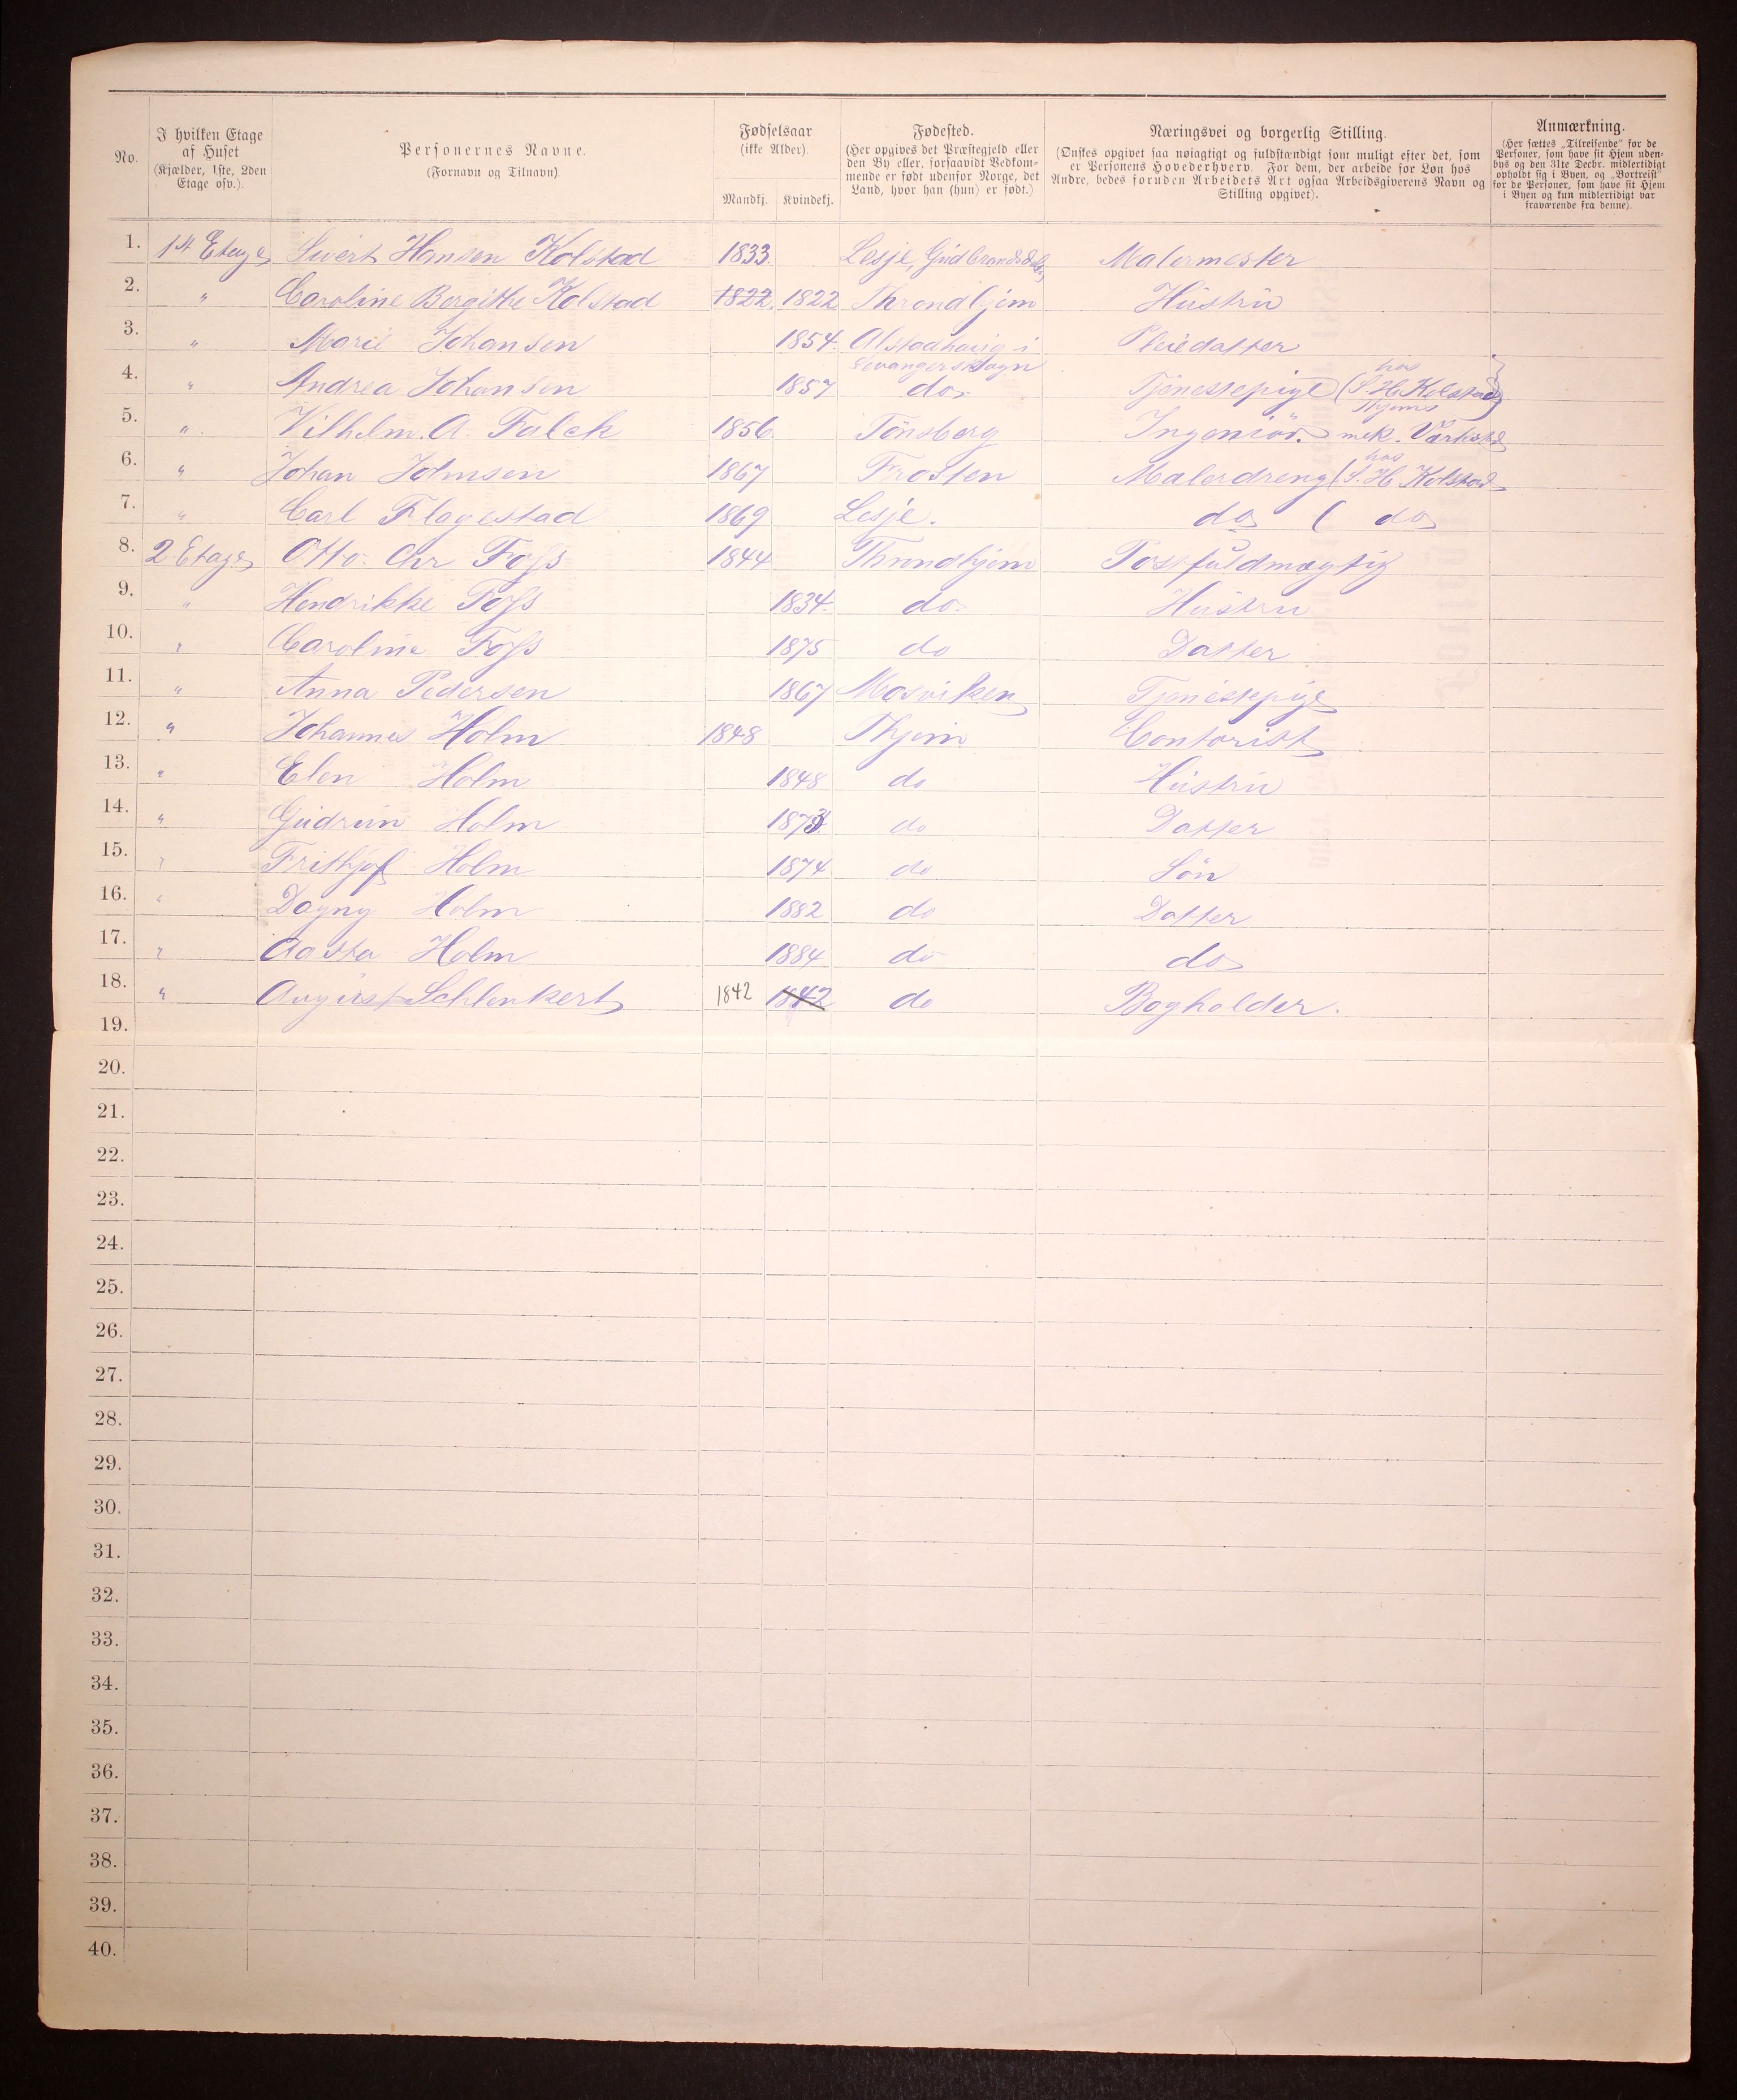 No.
I hvilken Etage
af Huset
(Kjælder, 1ste, 2den
Etage osv.).
Personernes Navne.
(Fornavn og Tilnavn).
Fødselsaar
(ikke Alder).
Mandkj. Kvindekj.
Fødested.
(Her opgives det Præstegjeld eller
den By eller, forsaavidt Vedkom-
mende er født udenfor Norge, det
Land, hvor han (hun) er født.)
Næringsvei og borgerlig Stilling.
(Ønskes opgivet saa nøiagtigt og fuldstændigt som muligt efter det, som
er Personens Hovederhverv. For dem, der arbeide for Løn hos
Andre, bedes foruden Arbeidets Art ogsaa Arbeidsgiverens Navn og
Stilling opgivet).
Anmærkning.
(Her sættes „Tilreisende“ for de
Personer, som have sit Hjem uden-
bys og den 31te Decbr. midlertidigt
opholdt sig i Byen, og „Bortreist“
for de Personer, som have sit Hjem
i Byen og kun midlertidigt var
fraværende fra denne).
1. 1st Etage Sivert Hansen Kolstad 1833. Lesje, Gudbrandsdalen Malermester
2. " Caroline Bergithe Kolstad 1822. 1822 Throndhjem Hustru
3. " Marie Johansen 1854. Alstadhaug i Pleiedatter
Levangers Sogn
4. " Andrea Johansen 1857 do. Tjenestepige (hos S. H. Kolstad)
5. " Vilhelm. A. Falck 1856. Tönsberg Ingeniör. Thjems mek. Værksted
6. " Johan Johnsen 1867 Frosten Malerdreng (hos S. H. Kolstad
7. " Carl Flagestad 1869 Lesje. do ( do
8. 2 Etage Otto. Chr Foss 1844 Throndhjem Postfuldmægtig
9. " Hendrikke Foss 1834. do. Hustru
10. " Caroline Foss 1875 do Datter
11. " Anna Pedersen 1867 Mosviken Tjenestepige
12. " Johannes Holm 1848 Thjem Contorist
13. " Elen Holm 1848 do Hustru
14. " Gudrun Holm 1873 do Datter
15. " Frithjof Holm 1874 do Sön
16. " Dagny Holm 1882 do Datter
17. " Aasta Holm 1884 do do
18. " August Schlenkert 1842 1842 do Bogholder.
19.
20.
21.
22.
23.
24.
25.
26.
27.
28.
29.
30.
31.
32.
33.
34.
35.
36.
37.
38.
39.
40.